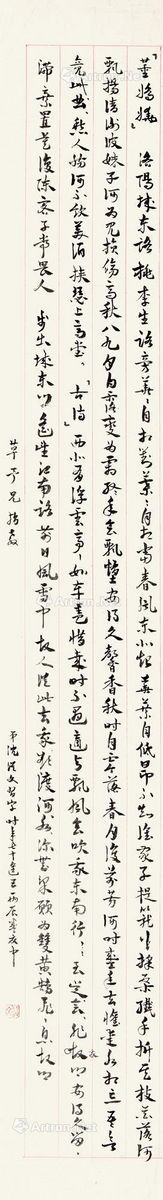 「董嬌嬈」 洛陽城東路 桃李生路旁 華華自相對 葉葉自相當 春風東北起 華葉自低昂 不知誰家子 提籠行採桑 纖手折其枝 花落何
飄揚 請謝彼姝子 何為見損傷 高秋八九月 白露變為霜 終年會飄墮 安得久馨香 秋時自零落 春月復芬芳 何時盛年去 懽愛永相忘 吾欲
竟此曲 愁人 何不飲美酒 挾瑟上高堂 「古詩」 西北有浮雲 亭亭如車蓋 惜哉時不遇 適與飄風會 吹我東南行 行行至吳會 非故鄉 安得久留
滯 棄置莫復陳 客子常畏人 步出城東門 遙望江南路 前日風雪中 故人從此去 我欲渡河 河水深無梁 願為雙黃鵠 飛還故鄉
兄指教
弟沈從文習字 時年七十過五 丙辰歲夜中
Artron.Net